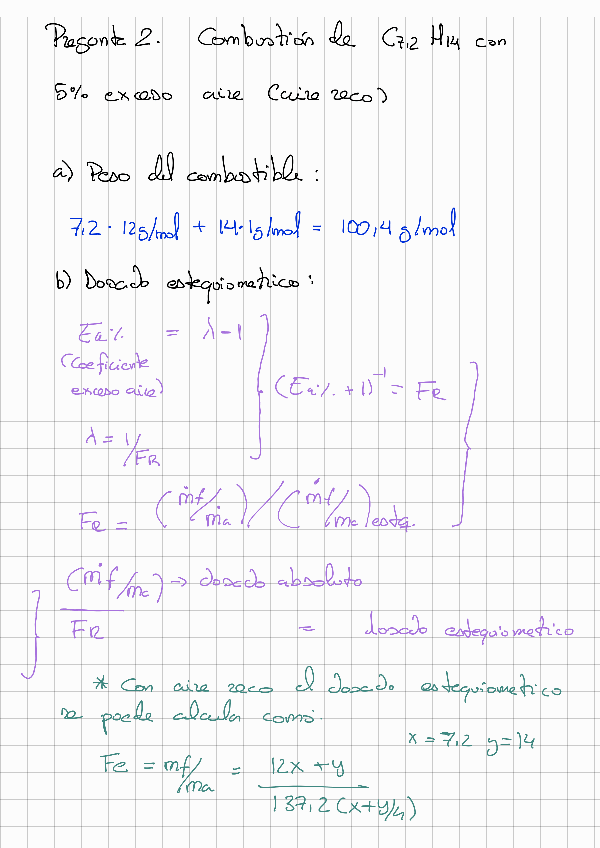 Pregunta 2. Combustión de C7,2 H14 con
5% exceso aire (aire seco)
a) Peso del combustible:
7,2 · 12g/mol + 14·1g/mol = 100,4 g/mol
b) Dosado estequiometico:
Ea% = λ-1
(Coeficiente
exceso aire)
(Ea% + 1)⁻¹ = FR
λ = 1/FR
FR = (ṁf/ṁa) / (ṁf/ma)esteq.
(ṁf/ma) → dosado absoluto
FR = dosado estequiometico
* Con aire seco el dosado estequiometico
se puede calcular como:
x = 7,2 y = 14
Fe = mf/ma = 12x + y
137,2 (x+y/4)